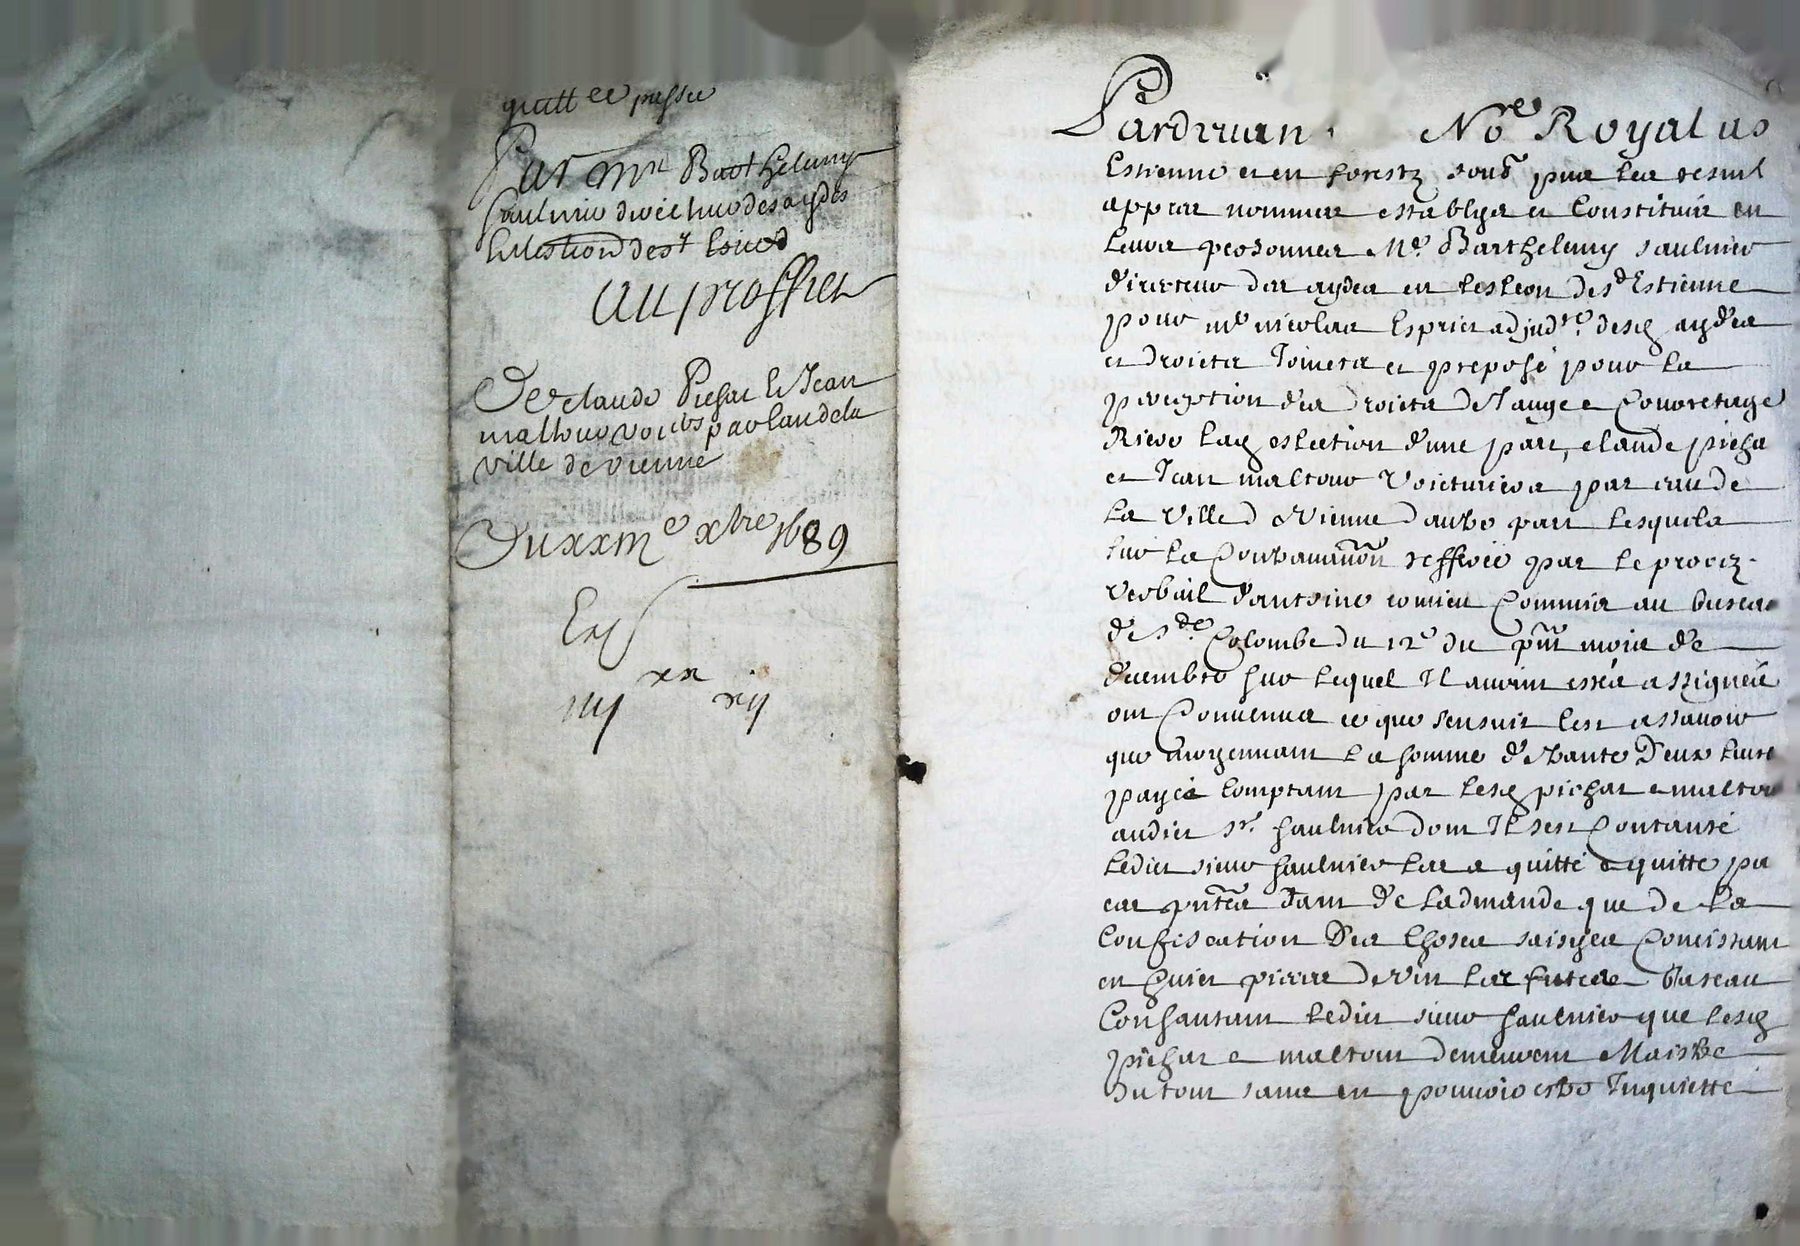 quitt ce passee
Par Mr Barthelemy
saulnier directeur des aydes
Eslection de st Estiene
Au proffict
De Claude Pichat et Jean
maltour voict.rs par eau de la
ville de vienne
Du xxme xbre 1689
Ex
iiij xx xij
Pardevan Nore Royal
Estienne et en forestz soubz les tesm
appres nommes establys et Constitues en
leurs personnes Me Barthelemy saulnier
directeur des aydes en leslection de sd Estienne
pour me nicolas Esprit adjudre desd aydes
et droicts Joincts et preposé pour la
perception des droicts de Jauge e Courretage
Riere lad eslection d'une part, claude picha
et Jean maltour voicturiers par eau de
la ville d vienne d'autre part lesquels
sur la Contravanon par le procez
verbail d'antoine Commis au bureau
de ste Colombe du 12e du pnt mois de
decembre sur lequel Il auroint estés assignés
ont Convenus ce que sensuit Cest assavoir
que moyennant la somme de deux livre
payée comptant par lesd pichat e maltou
audict sr. saulnier dont Il sest Contanté
ledict sieur saulnier les a quitté e quitte pa
ces pntes tant de ladmande que de la
Confiscation des choses saisyes Concistant
en huict pieces de vin les bateau
Consantant ledict sieur saulnier que lesd
pichat e maltour demeurent Maistre
du tout sans en pouvoir estre Inquietté